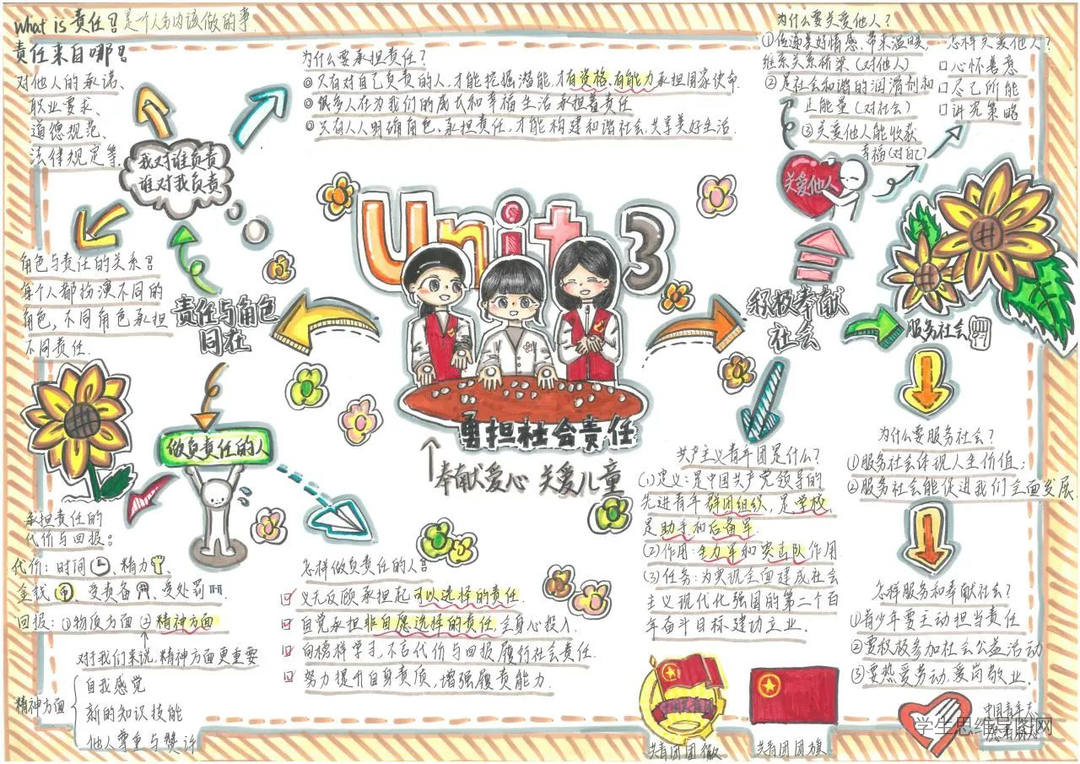 What is 责任？是一个人分内该做的事.
责任来自哪？
对他人的承诺、
职业要求、
道德规范、
法律规定等.
我对谁负责
谁对我负责
角色与责任的关系？
每个人都扮演不同的
角色，不同角色承担
不同责任.
责任与角色
同在
为什么要承担责任？
①只有对自己负责的人，才能挖掘潜能，才有资格、有能力承担国家使命.
②很多人在为我们的成长和幸福生活承担着责任
③只有人人明确角色，承担责任，才能构建和谐社会，共享美好生活.
Unit 3
勇担社会责任
奉献爱心 关爱儿童
做负责任的人
承担责任的
代价与回报：
代价：时间、精力、
金钱、受责备、受处罚.
回报：①物质方面 ②精神方面
对我们来说，精神方面更重要
精神方面
自我感觉
新的知识技能
他人尊重与赞许
怎样做负责任的人？
义无反顾承担起可以选择的责任.
自觉承担非自愿选择的责任，全身心投入.
向榜样学习，不言代价与回报履行社会责任.
努力提升自身素质，增强履责能力.
积极奉献
社会
关爱他人
为什么要关爱他人？
①传递美好情感，带来温暖，
维系关系桥梁（对他人）
②是社会和谐的润滑剂和
正能量（对社会）
③关爱他人能收获
幸福（对自己）
怎样关爱他人？
心怀善意
尽己所能
讲究策略
服务社会
为什么要服务社会？
①服务社会体现人生价值；
②服务社会能促进我们全面发展.
怎样服务和奉献社会？
①青少年要主动担当责任
②要积极参加社会公益活动
③要热爱劳动，爱岗敬业.
共产主义青年团是什么？
(1)定义：是中国共产党领导的
先进青年群团组织，是学校，
是助手和后备军.
(2)作用：生力军和突击队作用.
(3)任务：为实现全面建成社会
主义现代化强国的第二个百
年奋斗目标建功立业.
中国共青团
共青团团徽
共青团团旗
中国青年志
愿者标志
学生思维导图网